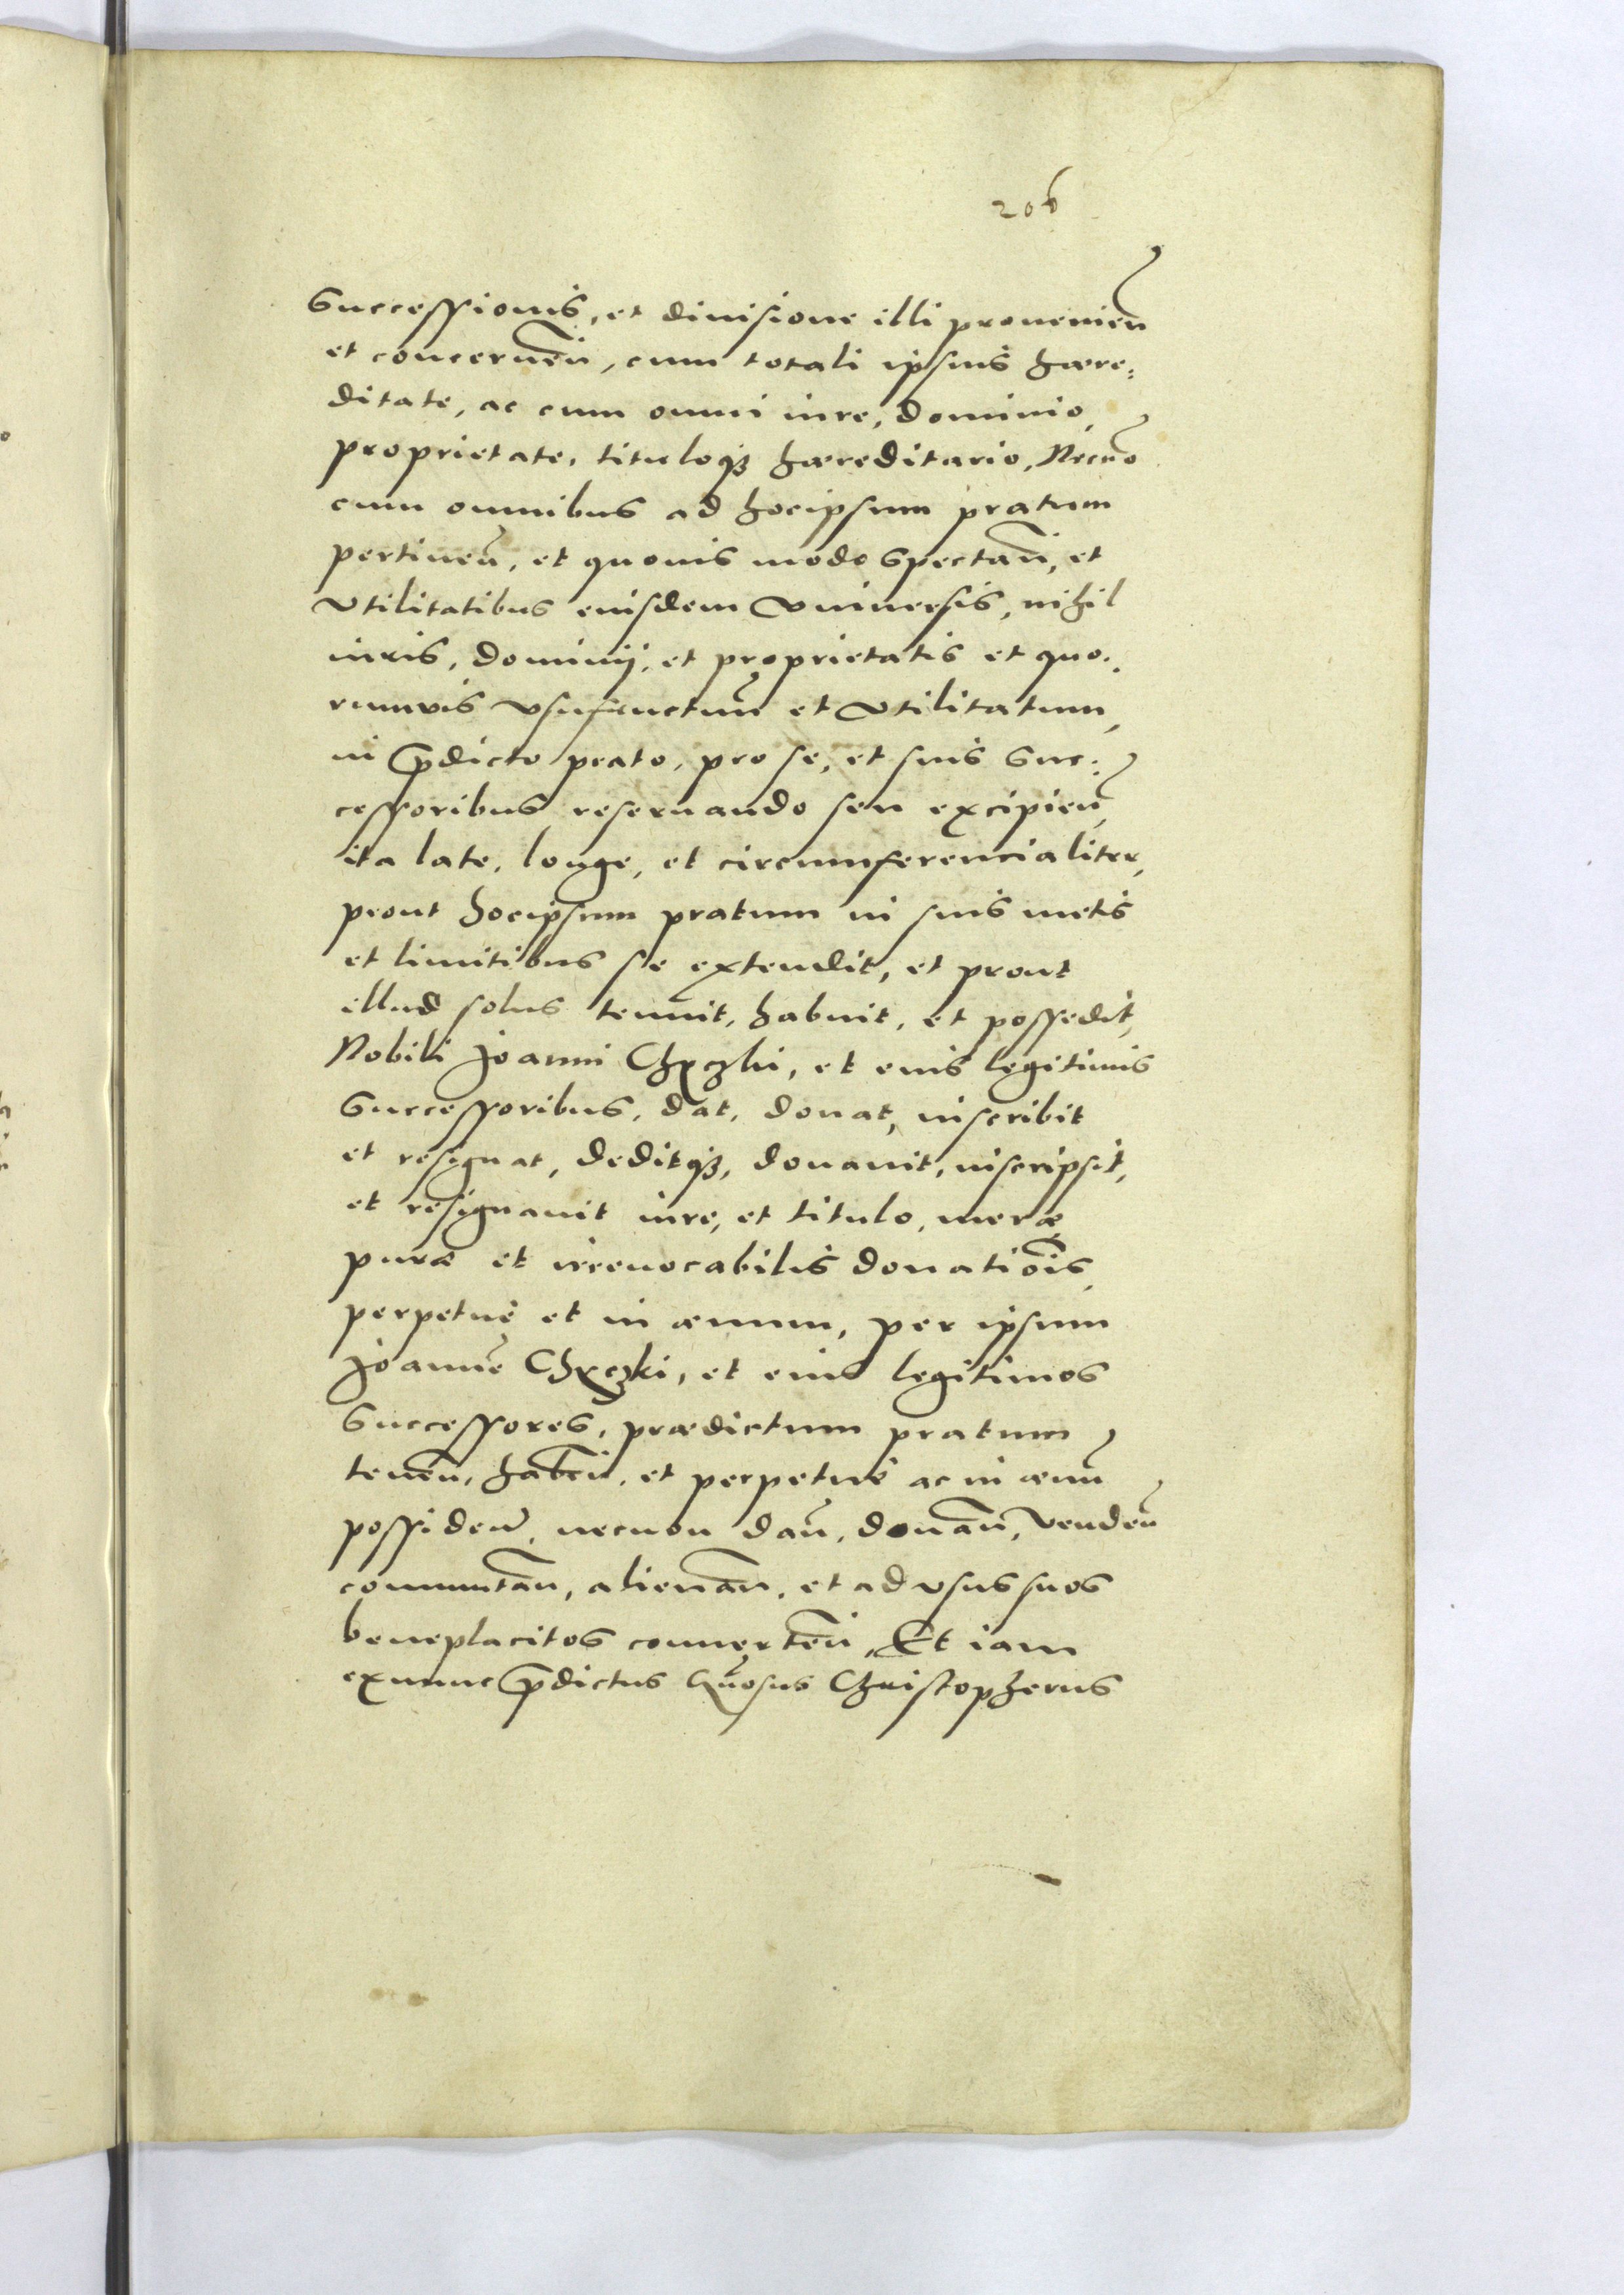 206
Successionis, et diuisione illi prouenien̄
et concernen̄, cum totali ipsius hære:
ditate, ac cum omni iure, dominio,
proprietate, tituloqꝫ hæreditario, Necnō
cum omnibus ad hocipsum pratum
pertinen̄, et quouis modo spectan̄, et
vtilitatibus eiusdem vniuersis, nihil
iuris, dominij, et proprietatis et quo:
rumvis vsufructuū et vtilitatum,
in p̄dicto prato, pro se, et suis suc:
cessoribus reseruando seu excipien̄,
ita late, longe, et circumferencialiter,
prout hocipsum pratum in suis metis
et limitibus se extendit, et prout
illud solus tenuit, habuit, et possedit,
Nobili Joanni Chrczki, et eius legitimis
Successoribus, dat, donat, inscribit
et resignat, deditqꝫ, donauit, inscripsit,
et resignauit iure, et titulo, meræ
puræ et irreuocabilis donatiōis,
perpetue et in æuum, per ipsum
Joannē Chrczki, et eius legitimos
Successores, prædictum pratum
tenen̄, haben̄, et perpetue ac in æuū
possiden̄, necnon dan̄, donan̄, venden̄
commutan̄, alienan̄, et ad vsus suos
beneplacitos conuerten̄, Et iam
exnunc p̄dictus Christopherus